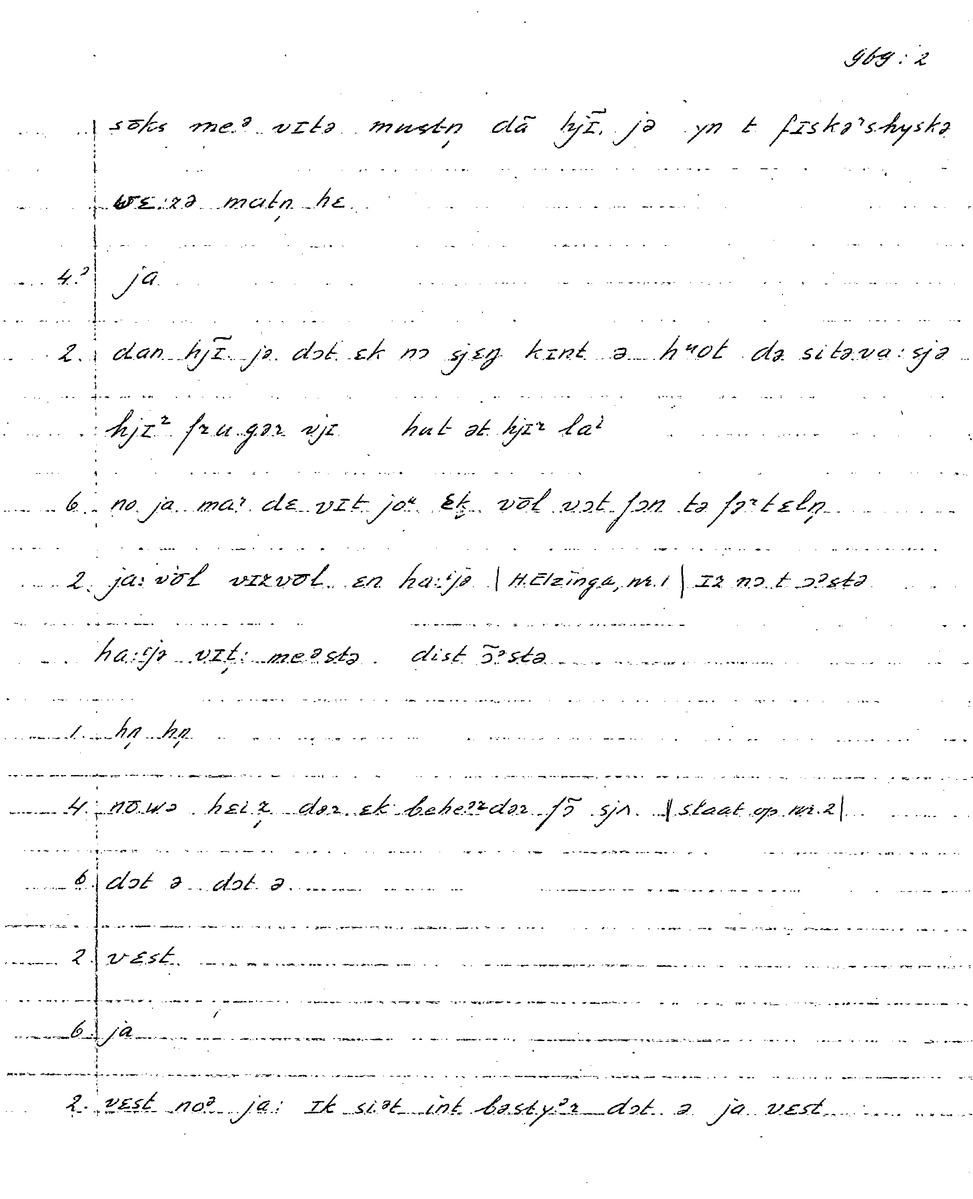 gbg: 2
sōks meᵊ vɪtə mustn̩ dā hjɪ̄. jə yn t fɪskəʳshyskə
wɛ:rə matn̩ hɛ
4.ᵓ ja
2. dan hjɪ̄ jə dɔt ɛk nɔ sjɛŋ kɪnt ə hᵘot də sitəva:sjə
hjɪʳ fru.gər vjɪ hut ət hjɪʳ laⁱ
6 no ja maʳ dɛ vɪt joᵘ ɛk vōl vɔt fɔn tə fəʳtɛln̩
2. ja: vōl vɪrvōl ɛn ha:ⁱjə | H. Elzinga, nr. 1 | ɪr nɔ t ɔᵊstə
ha:ⁱjə vɪt̩: meᵊstə dist ɔ̄ᵊstə
1. hn̩ hn̩
4. nō.wɔ hɛi r̩ dər ɛk beheᵊrdər fɔ̄ sjn. | staat op nr. 2 |
6. dɔt ə dɔt ə
2. vɛst
6. ja
2. vɛst noᵊ ja: ɪk siət int bəstyᵊr dɔt ə ja vɛst